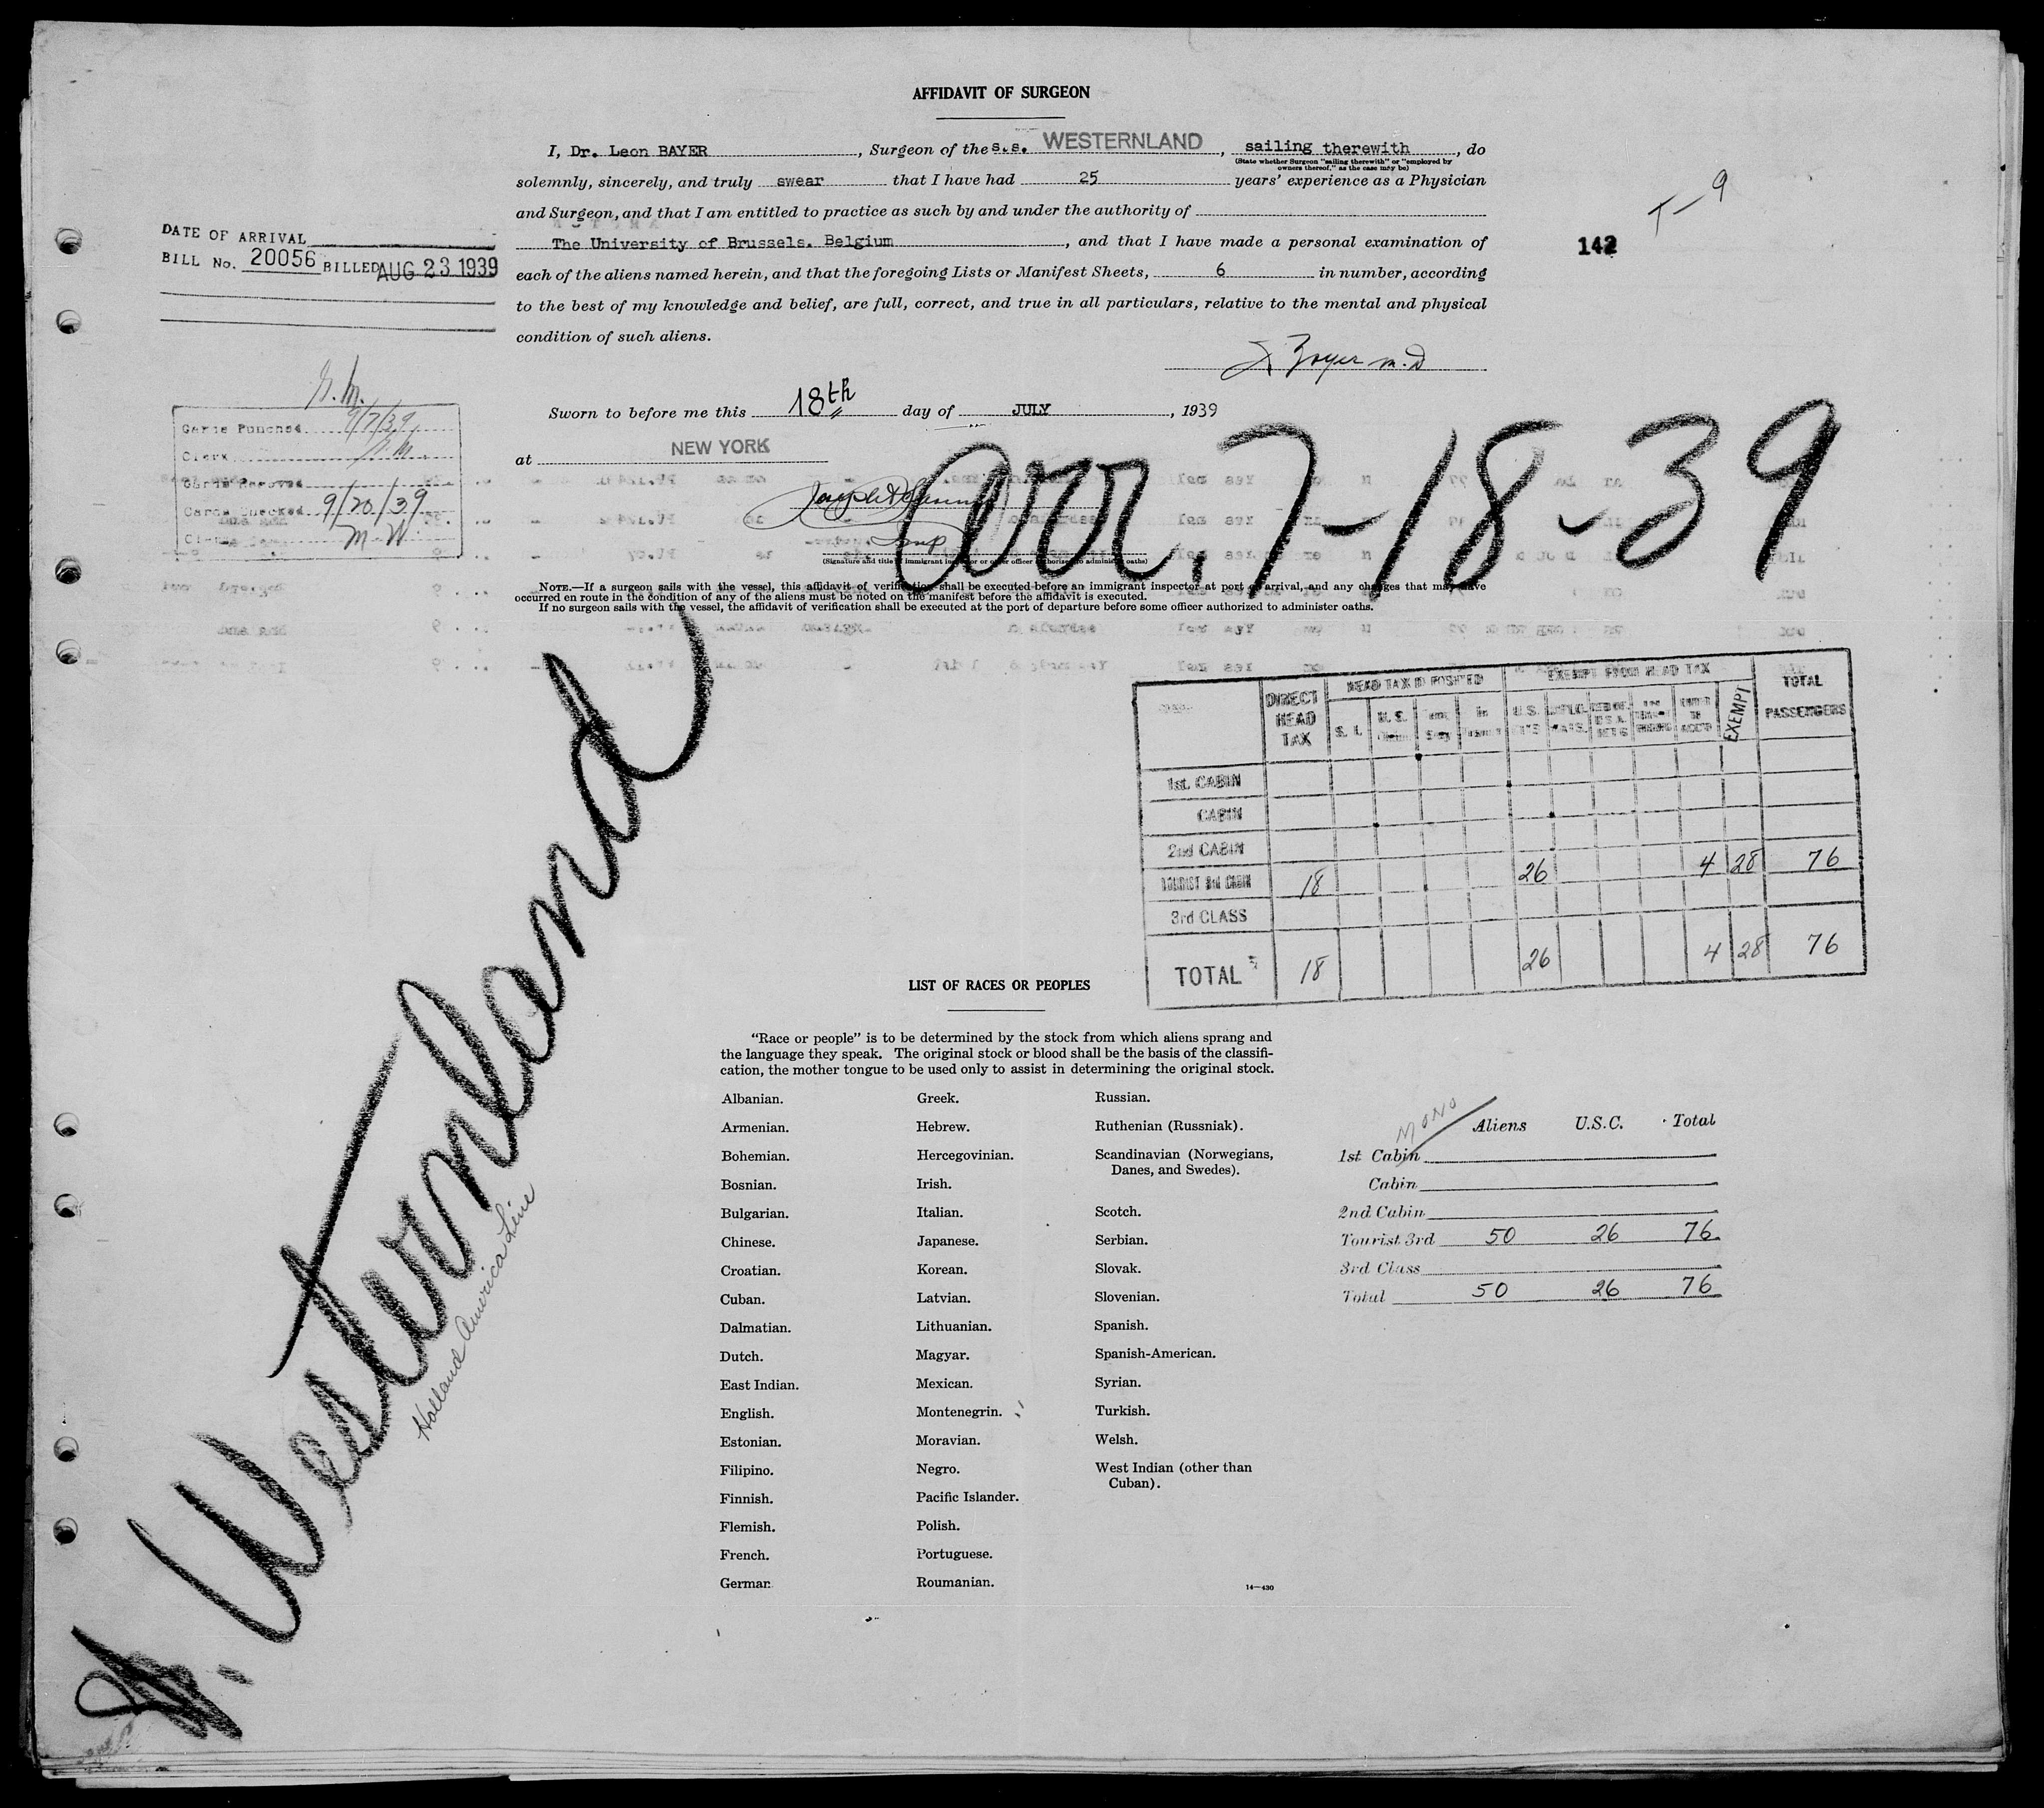 AFFIDAVIT OF SURGEON
I, Dr. Leon BAYER, Surgeon of the s.s. WESTERNLAND, sailing therewith, do
(State whether Surgeon "sailing therewith" or "employed by
owners thereof," as the case may be)
solemnly, sincerely, and truly swear that I have had 25 years' experience as a Physician
and Surgeon, and that I am entitled to practice as such by and under the authority of
The University of Brussels. Belgium, and that I have made a personal examination of
each of the aliens named herein, and that the foregoing Lists or Manifest Sheets, 6 in number, according
to the best of my knowledge and belief, are full, correct, and true in all particulars, relative to the mental and physical
condition of such aliens.
T-9
142
DATE OF ARRIVAL
BILL No. 20056 BILLED AUG 23 1939
M.D
Sworn to before me this 18th day of JULY, 1939
at NEW YORK
9/7/39
Clerk
Cards Checked 9/20/39
M.W.
Arr. 7-18-39
(Signature and title of immigrant inspector or other officer authorized to administer oaths)
NOTE.—If a surgeon sails with the vessel, this affidavit of verification shall be executed before an immigrant inspector at port of arrival, and any changes that may have
occurred en route in the condition of any of the aliens must be noted on the manifest before the affidavit is executed.
If no surgeon sails with the vessel, the affidavit of verification shall be executed at the port of departure before some officer authorized to administer oaths.
DIRECT HEAD TAX
HEAD TAX DEPOSITED
EXEMPT FROM HEAD TAX
TOTAL PASSENGERS
S. I.
U.S.
EXEMPT
1st. CABIN
CABIN
2nd CABIN
TOURIST 3rd CABIN 18 26 4 28 76
3rd CLASS
TOTAL 18 26 4 28 76
Westernland
Holland America Line
LIST OF RACES OR PEOPLES
"Race or people" is to be determined by the stock from which aliens sprang and
the language they speak. The original stock or blood shall be the basis of the classifi-
cation, the mother tongue to be used only to assist in determining the original stock.
Albanian.
Armenian.
Bohemian.
Bosnian.
Bulgarian.
Chinese.
Croatian.
Cuban.
Dalmatian.
Dutch.
East Indian.
English.
Estonian.
Filipino.
Finnish.
Flemish.
French.
German.
Greek.
Hebrew.
Hercegovinian.
Irish.
Italian.
Japanese.
Korean.
Latvian.
Lithuanian.
Magyar.
Mexican.
Montenegrin.
Moravian.
Negro.
Pacific Islander.
Polish.
Portuguese.
Roumanian.
Russian.
Ruthenian (Russniak).
Scandinavian (Norwegians,
Danes, and Swedes).
Scotch.
Serbian.
Slovak.
Slovenian.
Spanish.
Spanish-American.
Syrian.
Turkish.
Welsh.
West Indian (other than
Cuban).
14—430
MONO
Aliens U.S.C. Total
1st Cabin
Cabin
2nd Cabin
Tourist 3rd 50 26 76
3rd Class
Total 50 26 76